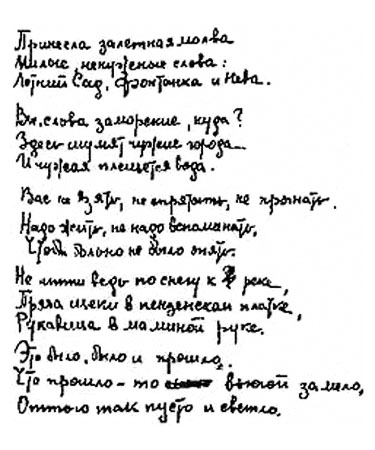 Принесла залетная молва
Милые, ненужные слова:
Летний Сад, Фонтанка и Нева.
Вы, слова заморские, куда?
Здесь шумят чужие города
И чужая плещется вода.
Вас не взять, не спрятать, не прогнать.
Надо жить, не надо вспоминать,
Чтоб больно не было опять.
Не идти ведь по снегу к реке,
Пряча щеки в пензенском платке,
Рукавица в маминой руке.
Это было, было и прошло.
Что прошло – то вьюгой замело,
Оттого так пусто и светло.